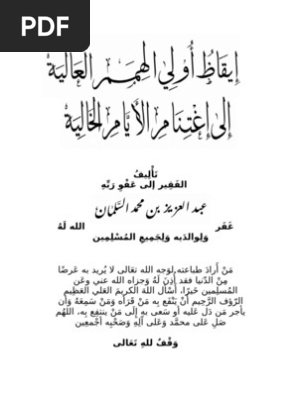 PDF
إِيقَاظُ أُولِي الْهِمَمِ الْعَالِيَةِ
إِلَى اغْتِنَامِ الأَيَّامِ الْخَالِيَةِ
تَأْلِيفُ
الفَقِيرِ إِلى عَفْوِ رَبِّهِ
عبد العزيز بن محمد السَّلمان
غَفَر الله لَهُ
وَلِوالدَيه وَلِجَمِيعِ المُسْلِمِين
مَنْ أَرادَ طباعته لوَجه الله تعَالى لا يُريد به عَرضًا
مِنْ الدّنيا فقد أَذِنَ لَهُ وَجزاه الله عني وعَن
المُسلمين خَيرًا، أسْأل الله الكريمَ العَلي العَظِيم
الرّؤف الرَّحِيم أَنْ يَنْفَع بِهِ مَنْ قَرأه وَمَنْ سَمِعَهُ وأَن
يأجر مَن دَل عَليه أو سَعى بِهِ إلَى مَنْ ينتفع بِهِ، اللهُم
صَل عَلى محمَّد وَعَلى آلِهِ وَصَحْبِه أجْمَعِين
وَقْفٌ للهِ تَعَالى